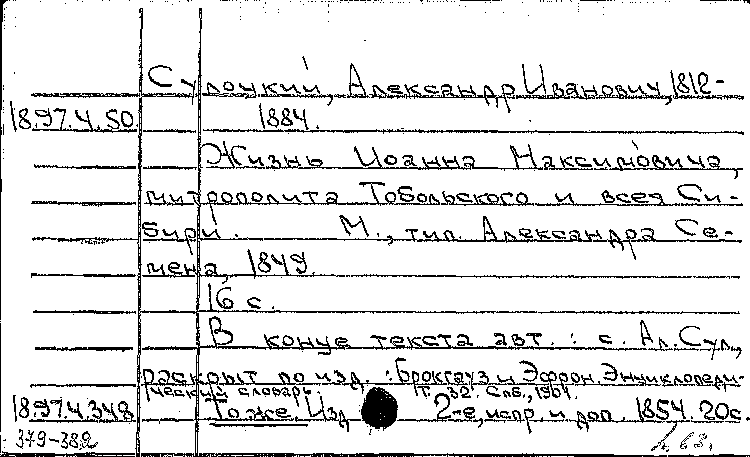 Сулоцкий, Александр Иванович, 1812-
18.97.4.50 1884.
Жизнь Иоанна Максимовича,
митрополита Тобольского и всея Си-
бири. М., тип. Александра Се-
мена, 1849.
16 с.
В конце текста авт.: с. Ал. Сул.,
раскрыт по изд.: Брокгауз и Эфрон. Энциклопеди-
ческий словарь. Т. 32. Спб., 1901.
18.97.4.348 То же. Изд 2-е, испр. и доп. 1854. 20 с.
379-382 63.